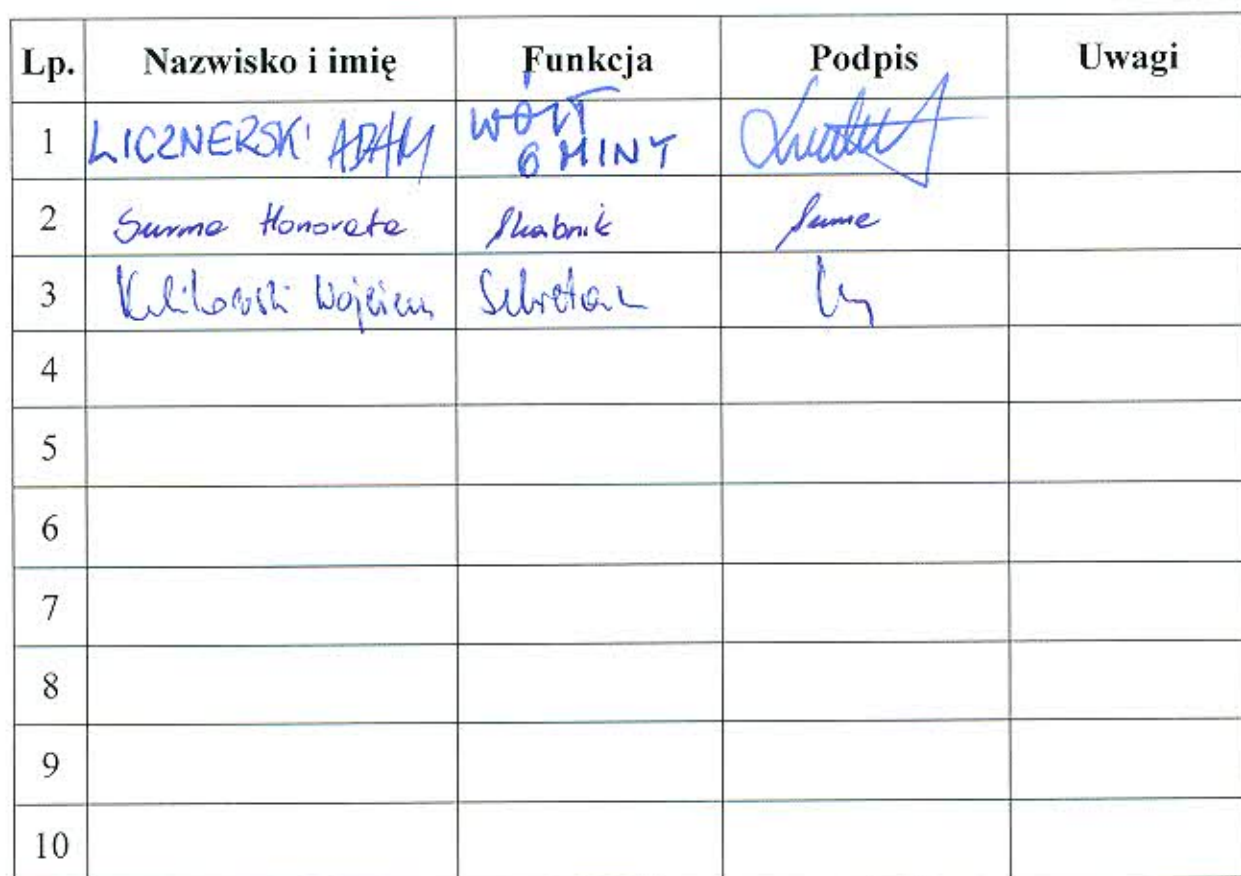 Lp. Nazwisko i imię Funkcja Podpis Uwagi
1 LICZNERSKI ADAM WÓJT
GMINY
2 Surma Honorata Skarbnik
3 Wojciech Sekretarz
4
5
6
7
8
9
10